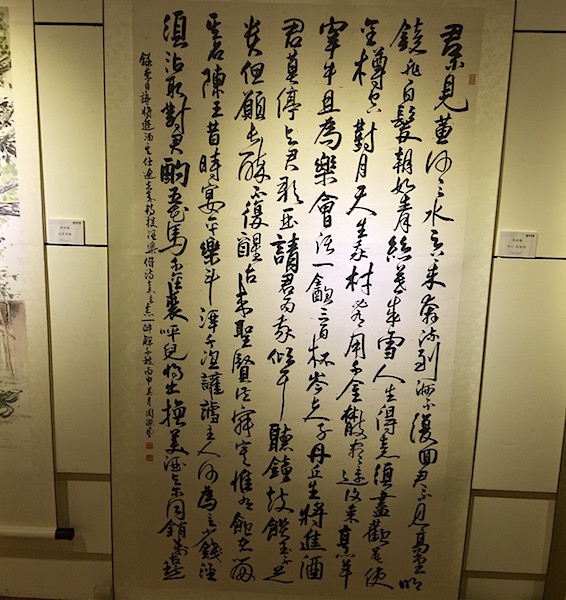 君不見黃河之水天上來奔流到海不復回君不見高堂明
鏡悲白髮朝如青絲暮成雪人生得意須盡歡莫使
金樽空對月天生我材必有用千金散盡還復來烹羊
宰牛且為樂會須一飲三百杯岑夫子丹丘生將進酒
君莫停与君歌一曲請君為我傾耳聽鐘鼓饌玉不足
貴但願長醉不復醒古來聖賢皆寂寞惟有飲者留
其名陳王昔時宴平樂斗酒十千恣讙謔主人何為言少錢徑
須沽取對君酌五花馬千金裘呼兒將出換美酒与尔同銷萬古愁
錄李白詩將進酒